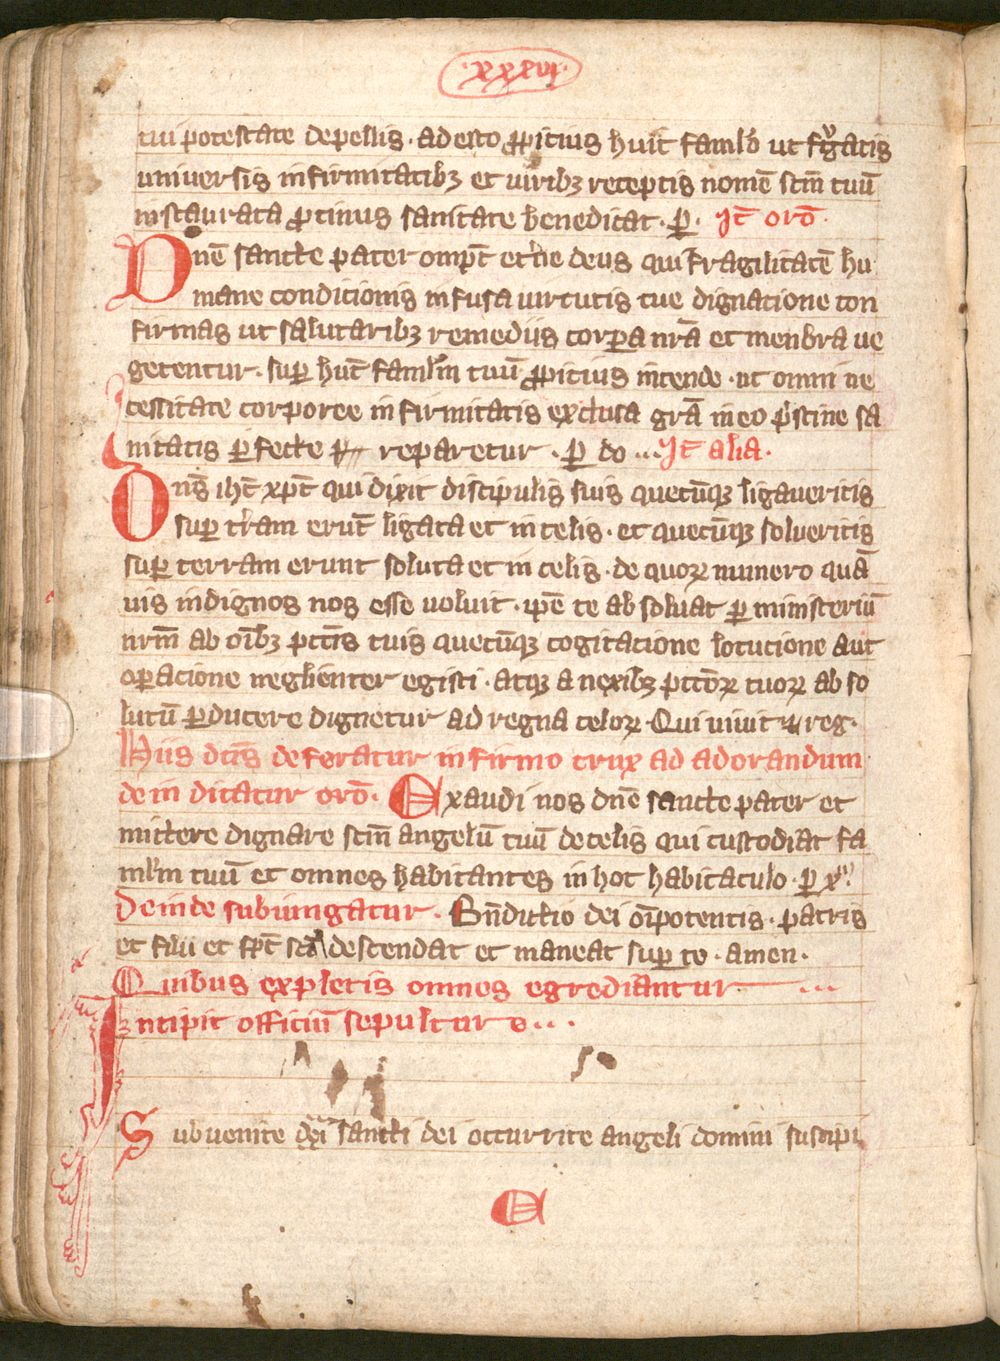 ·xxxvi·
tui potestate depellis · adesto ꝓpitius huic famlo ut fugatis
universis infirmitatibꝫ et viribꝫ receptis nomē scm̄ tuū
instaurata ꝓtinus sanitate benedicat · ꝑ · Jt̄ orō ·
Dnē sancte pater ompt̄ et̄ne deus qui fragilitatē hu
mane condicionis infusa virtutis tue dignacione con
firmas ut salutaribꝫ remediis corꝑa nr̄a et menbra ve
getentur · suꝑ huc̄ famlm̄ tuū ꝓpitius intende · ut omni ne
cessitate corporee infirmitatis exclusa gr̄a in eo p̄stine sa
nitatis ꝑfecte reparetur · ꝑ do ... Jt̄ alia ·
Dns̄ ihc̄ xpc̄ qui dixit discipulis suis quecūqꝫ ligaveritis
suꝑ tr̄am erūt ligata et in celis · et quecūqꝫ solveritis
suꝑ terram erunt soluta et in celis · de quoꝝ numero quā
vis indignos nos esse voluit · ipē te absolvat ꝑ ministeriū
nrm̄ ab oībꝫ pctīs tuis quecūqꝫ cogitacione locucione aut
oꝑacione negligenter egisti · atqꝫ a nexibꝫ pctōꝝ tuoꝝ abso
lutū ꝑducere dignetur ad regna celoꝝ · Qui vivit ⁊ reg ·
Hiis dictīs deferatur infirmo crux ad adorandum
dein dicatur orō · Exaudi nos dnē sancte pater et
mittere dignare scm̄ angelū tuū de celis qui custodiat fa
mlm̄ tuū et omnes habitantes in hoc habitaculo · ꝑ x
Deinde subiungatur · Bn̄dictio dei oīpotentis · patris
et filii et sp̄c sc̄i descendat et maneat suꝑ te · amen ·
Quibus expletis omnes egrediantur ...
Incipit officiū sepulture ...
Subvenite sancti dei occurrite angeli domini suscipi